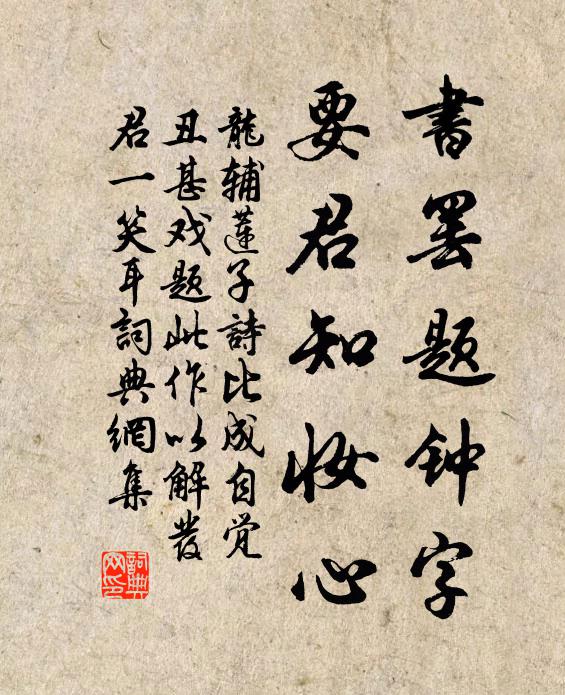 書罢題钟字
要君知妆心
龍辅蓮子詩比成自觉
丑甚戏题此作以解发
君一笑耳詞典網集
詞典网印